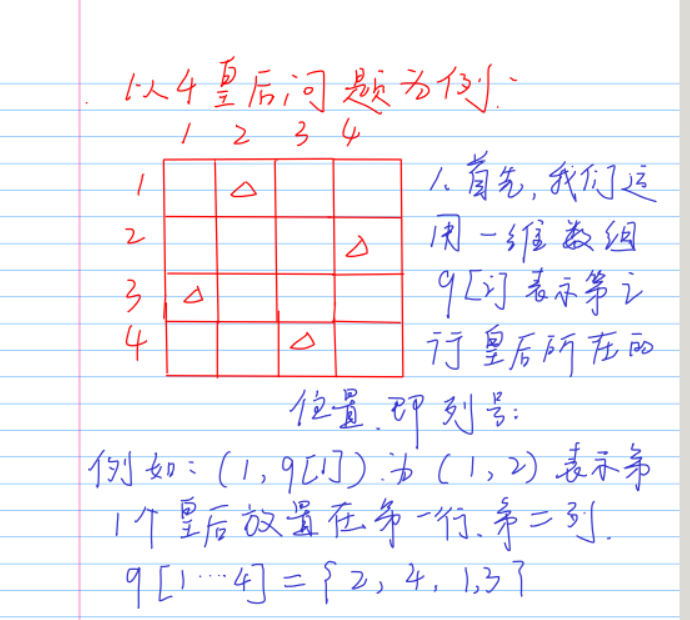 以4皇后问题为例:
1 2 3 4
1
2
3
4
1. 首先,我们运
用一维数组
q[i]表示第i
行皇后所在的
位置,即列号:
例如:(1,q[1])为(1,2)表示第
1个皇后放置在第一行、第二列.
q[1…4]={2,4,1,3}